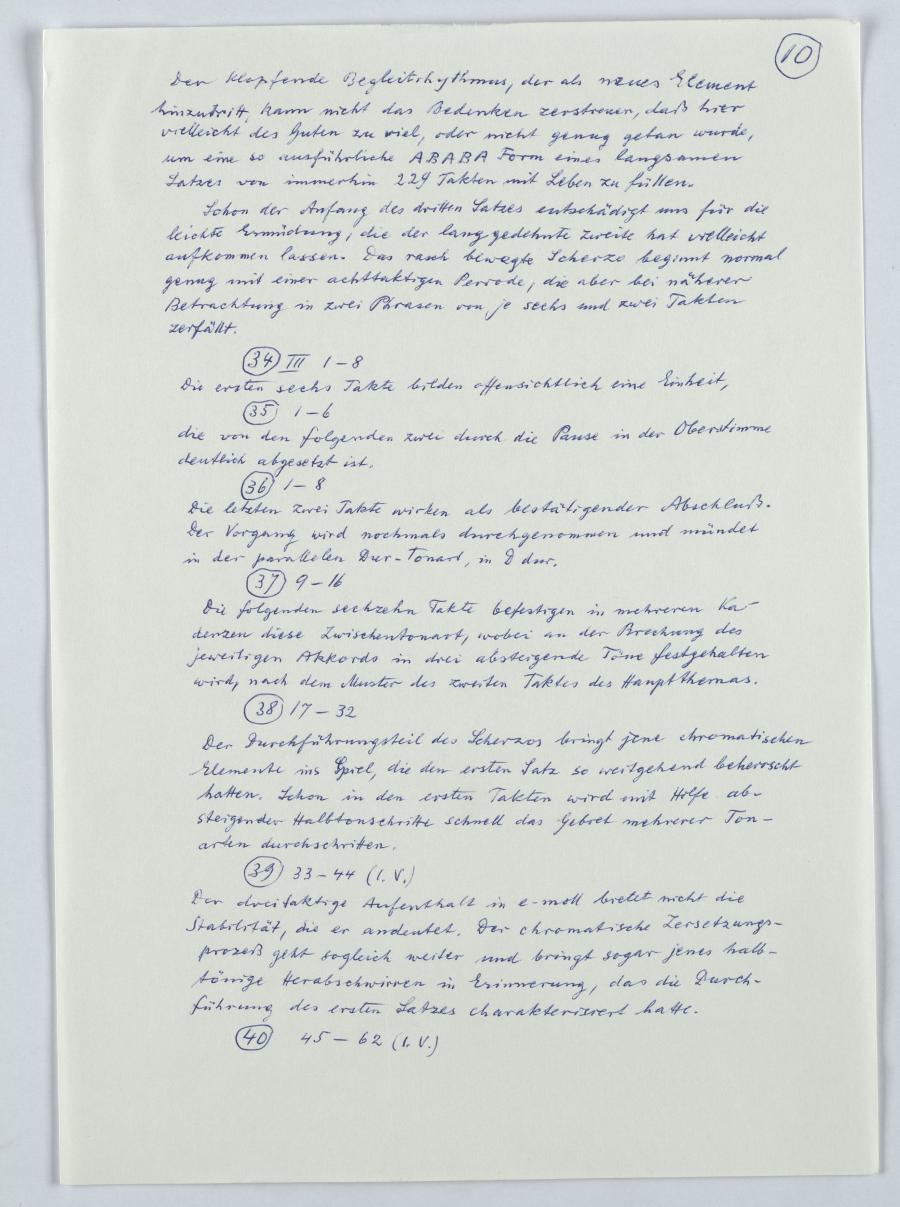 10
Der klopfende Begleitrhythmus, der als neues Element
hinzutritt, kann nicht das Bedenken zerstreuen, daß hier
vielleicht des Guten zu viel, oder nicht genug getan wurde,
um eine so ausführliche ABABA Form eines langsamen
Satzes von immerhin 229 Takten mit Leben zu füllen.
Schon der Anfang des dritten Satzes entschädigt uns für die
leichte Ermüdung, die der lang gedehnte zweite hat vielleicht
aufkommen lassen. Das rasch bewegte Scherzo beginnt normal
genug mit einer achttaktigen Periode, die aber bei näherer
Betrachtung in zwei Phrasen von je sechs und zwei Takten
zerfällt.
34 III 1–8
Die ersten sechs Takte bilden offensichtlich eine Einheit,
35 1–6
die von den folgenden zwei durch die Pause in der Oberstimme
deutlich abgesetzt ist.
36 1–8
Die letzten zwei Takte wirken als bestätigender Abschluß.
Der Vorgang wird nochmals durchgenommen und mündet
in der parallelen Dur-Tonart, in D dur.
37 9–16
Die folgenden sechzehn Takte befestigen in mehreren Ka-
denzen diese Zwischentonart, wobei an der Brechung des
jeweiligen Akkords in drei absteigende Töne festgehalten
wird, nach dem Muster des zweiten Taktes des Hauptthemas.
38 17–32
Der Durchführungsteil des Scherzos bringt jene chromatischen
Elemente ins Spiel, die den ersten Satz so weitgehend beherrscht
hatten. Schon in den ersten Takten wird mit Hilfe ab-
steigender Halbtonschritte schnell das Gebiet mehrerer Ton-
arten durchschritten.
39 33–44 (I.V.)
Der dreitaktige Aufenthalt in e-moll bietet nicht die
Stabilität, die er andeutet. Der chromatische Zersetzungs-
prozeß geht sogleich weiter und bringt sogar jenes halb-
tönige Herabschwirren in Erinnerung, das die Durch-
führung des ersten Satzes charakterisiert hatte.
40 45–62 (I.V.)